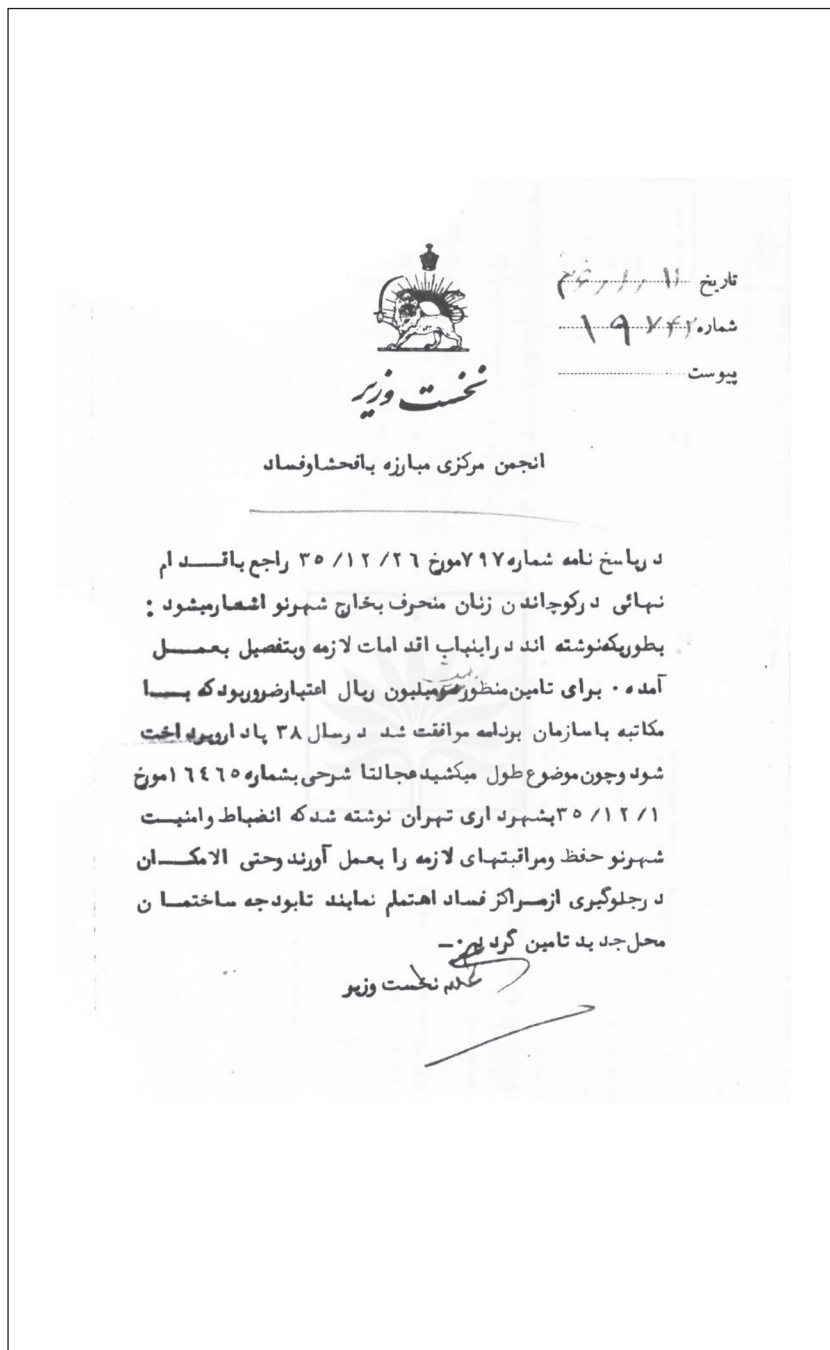 تاریخ ۱۱
شماره ۱۹۷۴۲
پیوست
نخست وزیر
انجمن مرکزی مبارزه بافحشاوفساد
درپاسخ نامه شماره ۷۹۷مورخ ۳۵/۱۲/۲۶ راجع باقـــدام
نهائی درکوچاندن زنان منحرف بخارج شهرنو اشعارمیشود :
بطوریکه‌نوشته اند دراینباب اقدامات لازمه وبتفصیل بعمـــل
آمده . برای تامین‌منظور میلیون ریال اعتبارضروربودکه بـــا
مکاتبه باسازمان برنامه موافقت شد درسال ۳۸ پرداخت
شود وچون‌موضوع طول میکشید عجالتا شرحی بشماره ۱۶۴۶۵مورخ
۳۵/۱۲/۱ بشهرداری تهران نوشته شدکه انضباط وامنیت
شهرنو حفظ ومراقبتهای لازمه را بعمل آورند وحتی الامکـــان
درجلوگیری ازمـراکز فساد اهتمام نمایند تابودجه ساختمــان
محل‌جدید تامین گردد.ـ
نخست وزیر